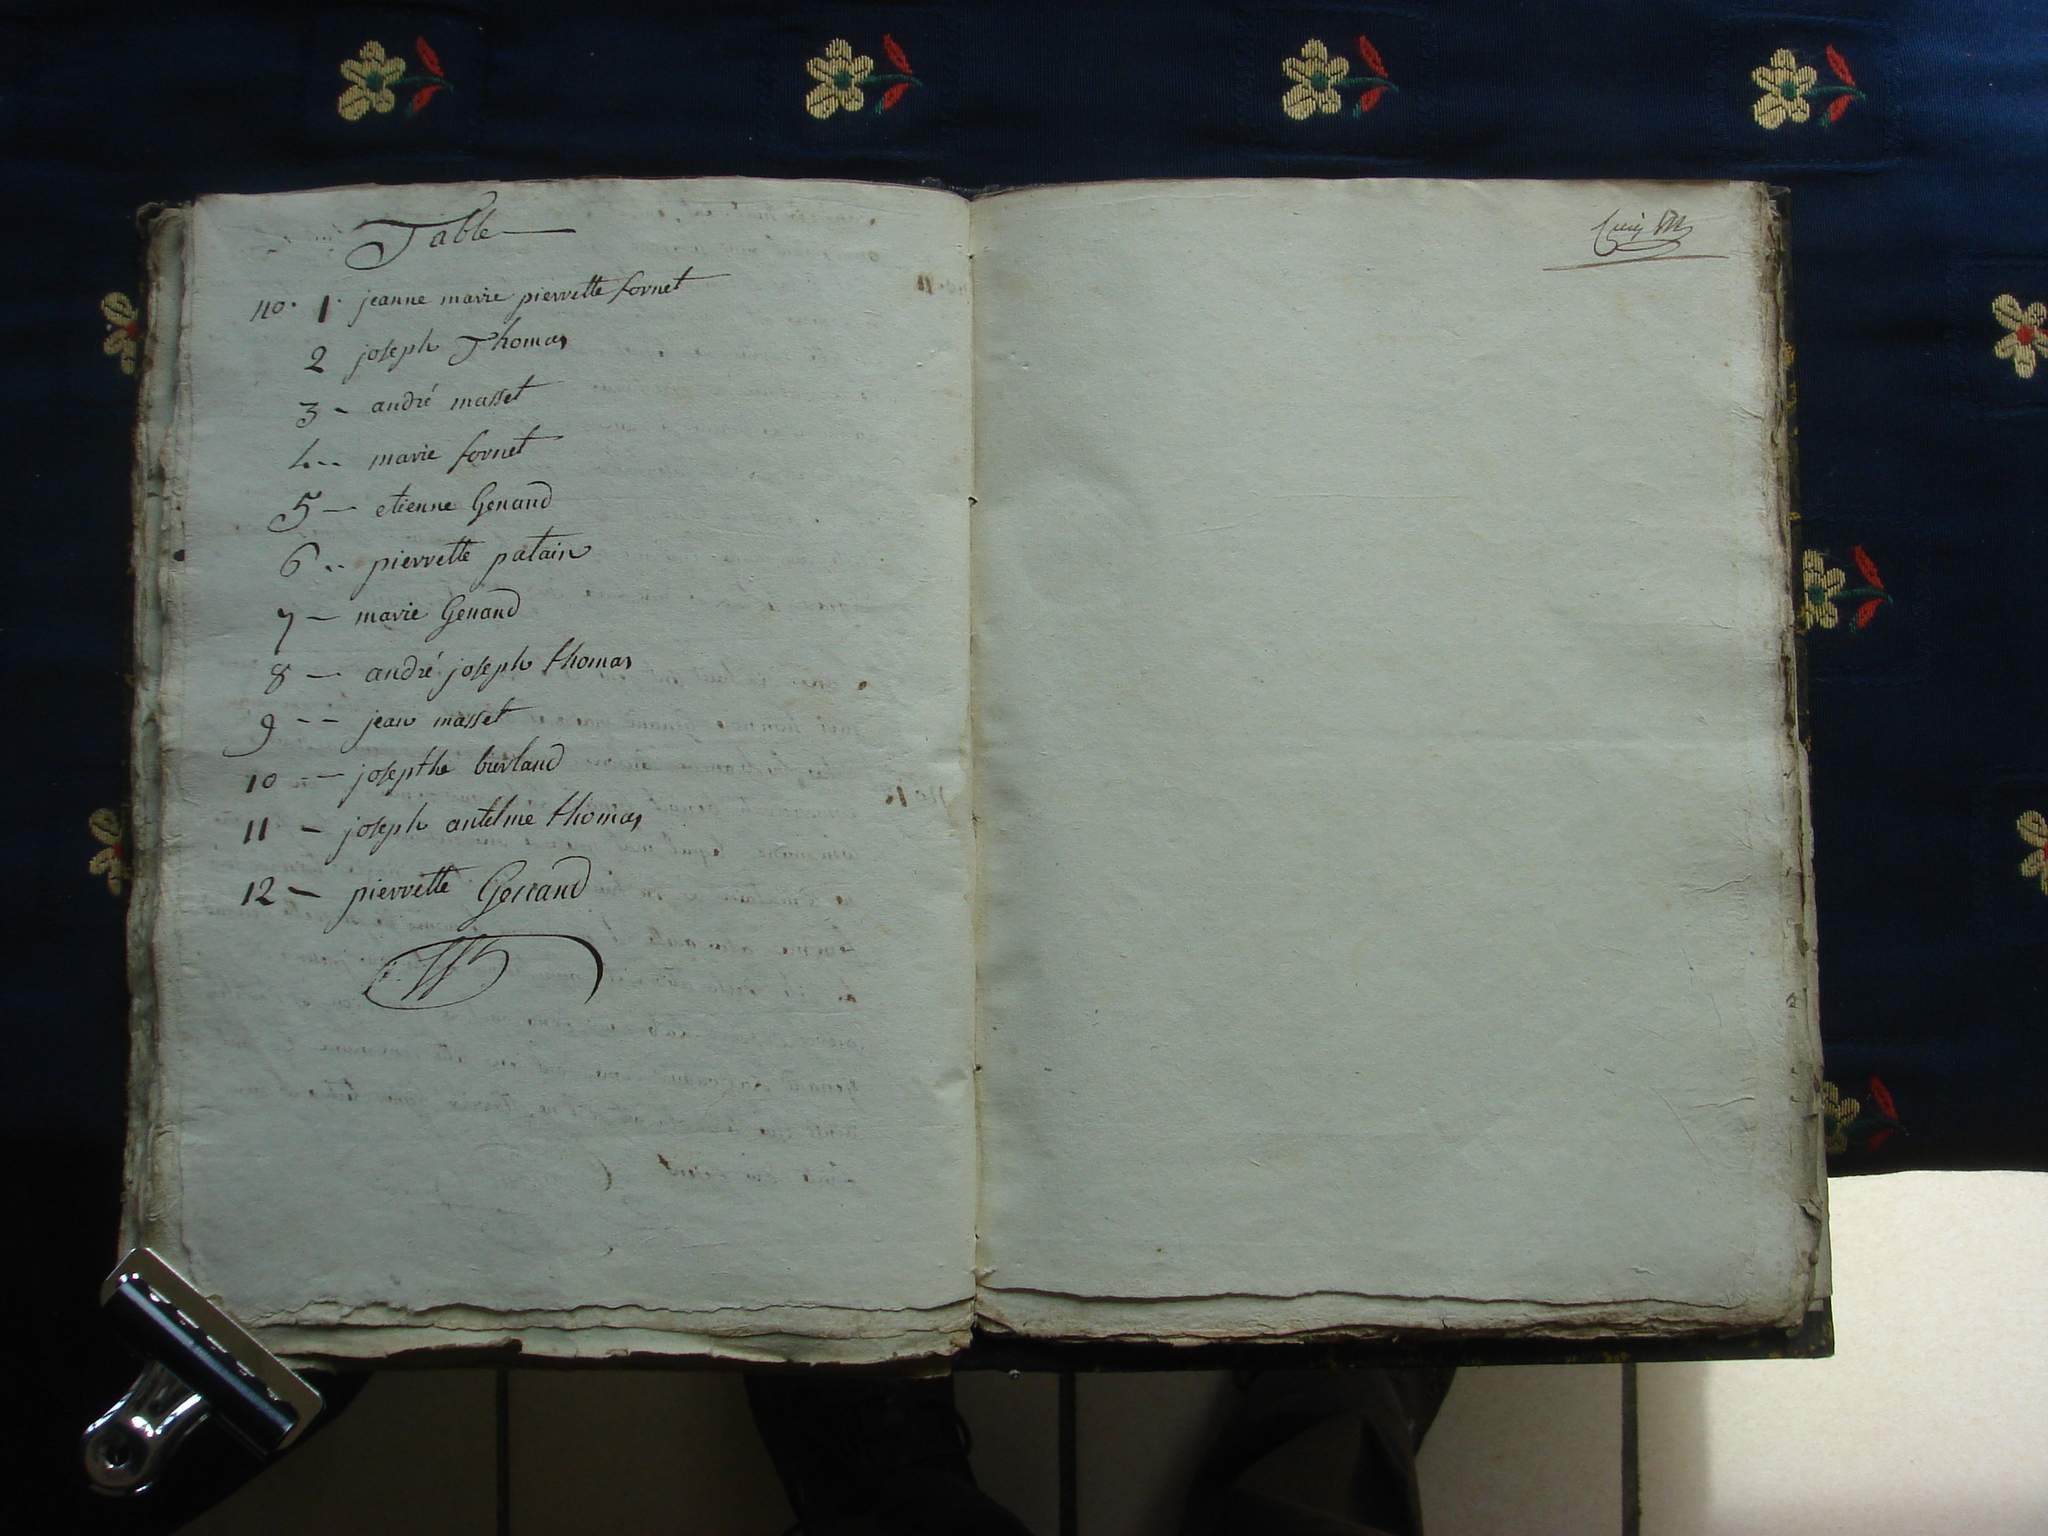 Table
no. 1. jeanne marie pierrette fornet
2 joseph Thomas
3 - andré masset
4 -- marie fornet
5 - etienne Genand
6 .. pierrette patain
7 - marie Genand
8 - andré joseph thomas
9 - - jean masset
10 - - josepthe burland
11 - joseph antelme thomas
12 - pierrette Genand